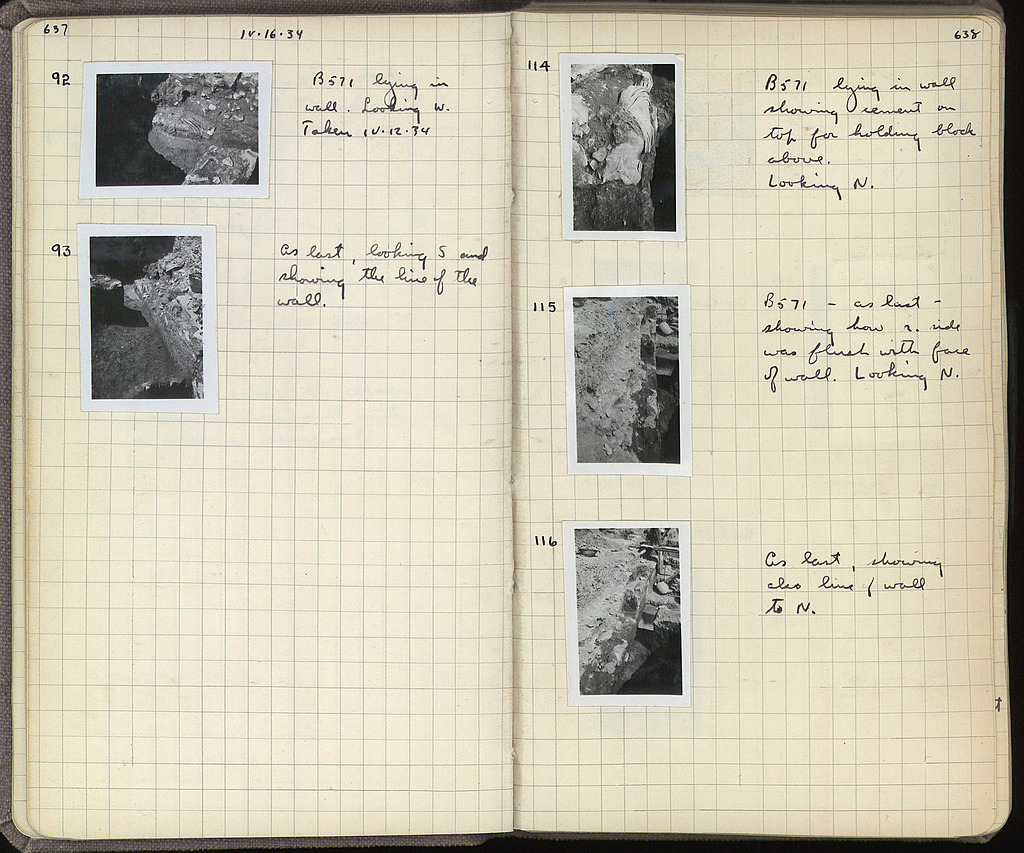 637
IV·16·34
92
B571 lying in
wall. Looking W.
Taken IV·12·34
93
As last, looking S and
showing the line of the
wall.
638
114
B571 lying in wall
showing cement on
top for holding block
above.
Looking N.
115
B571 – as last –
showing how r. side
was flush with face
of wall. Looking N.
116
As last, showing
also line of wall
to N.